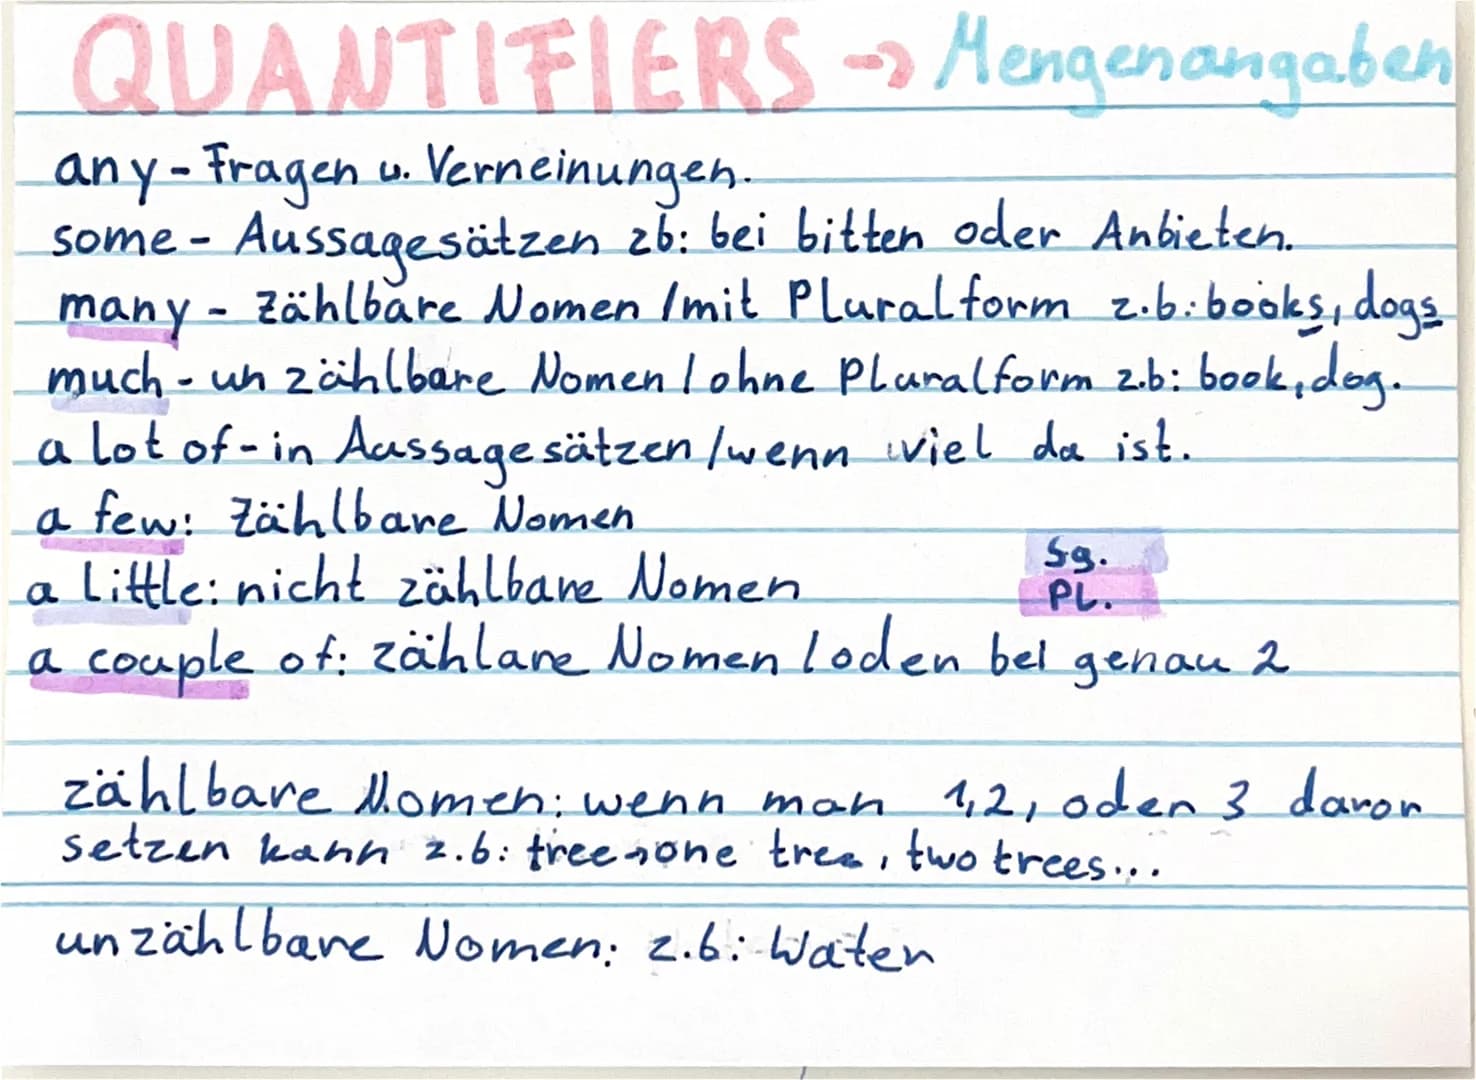 QUANTIFIERS → Mengenangaben
any - Fragen u. Verneinungen.
some - Aussagesätzen zb: bei bitten oder Anbieten.
many - Zählbare Nomen / mit Pluralform z.b.: books, dogs
much - unzählbare Nomen / ohne Pluralform z.b: book, dog.
a lot of - in Aussagesätzen / wenn viel da ist.
a few: Zählbare Nomen
Sg.
a little: nicht zählbare Nomen
PL.
a couple of: zählare Nomen / oder bei genau 2
zählbare Nomen: wenn man 1, 2, oder 3 davor
setzen kann z.b: tree → one tree, two trees...
unzählbare Nomen: z.b: Water